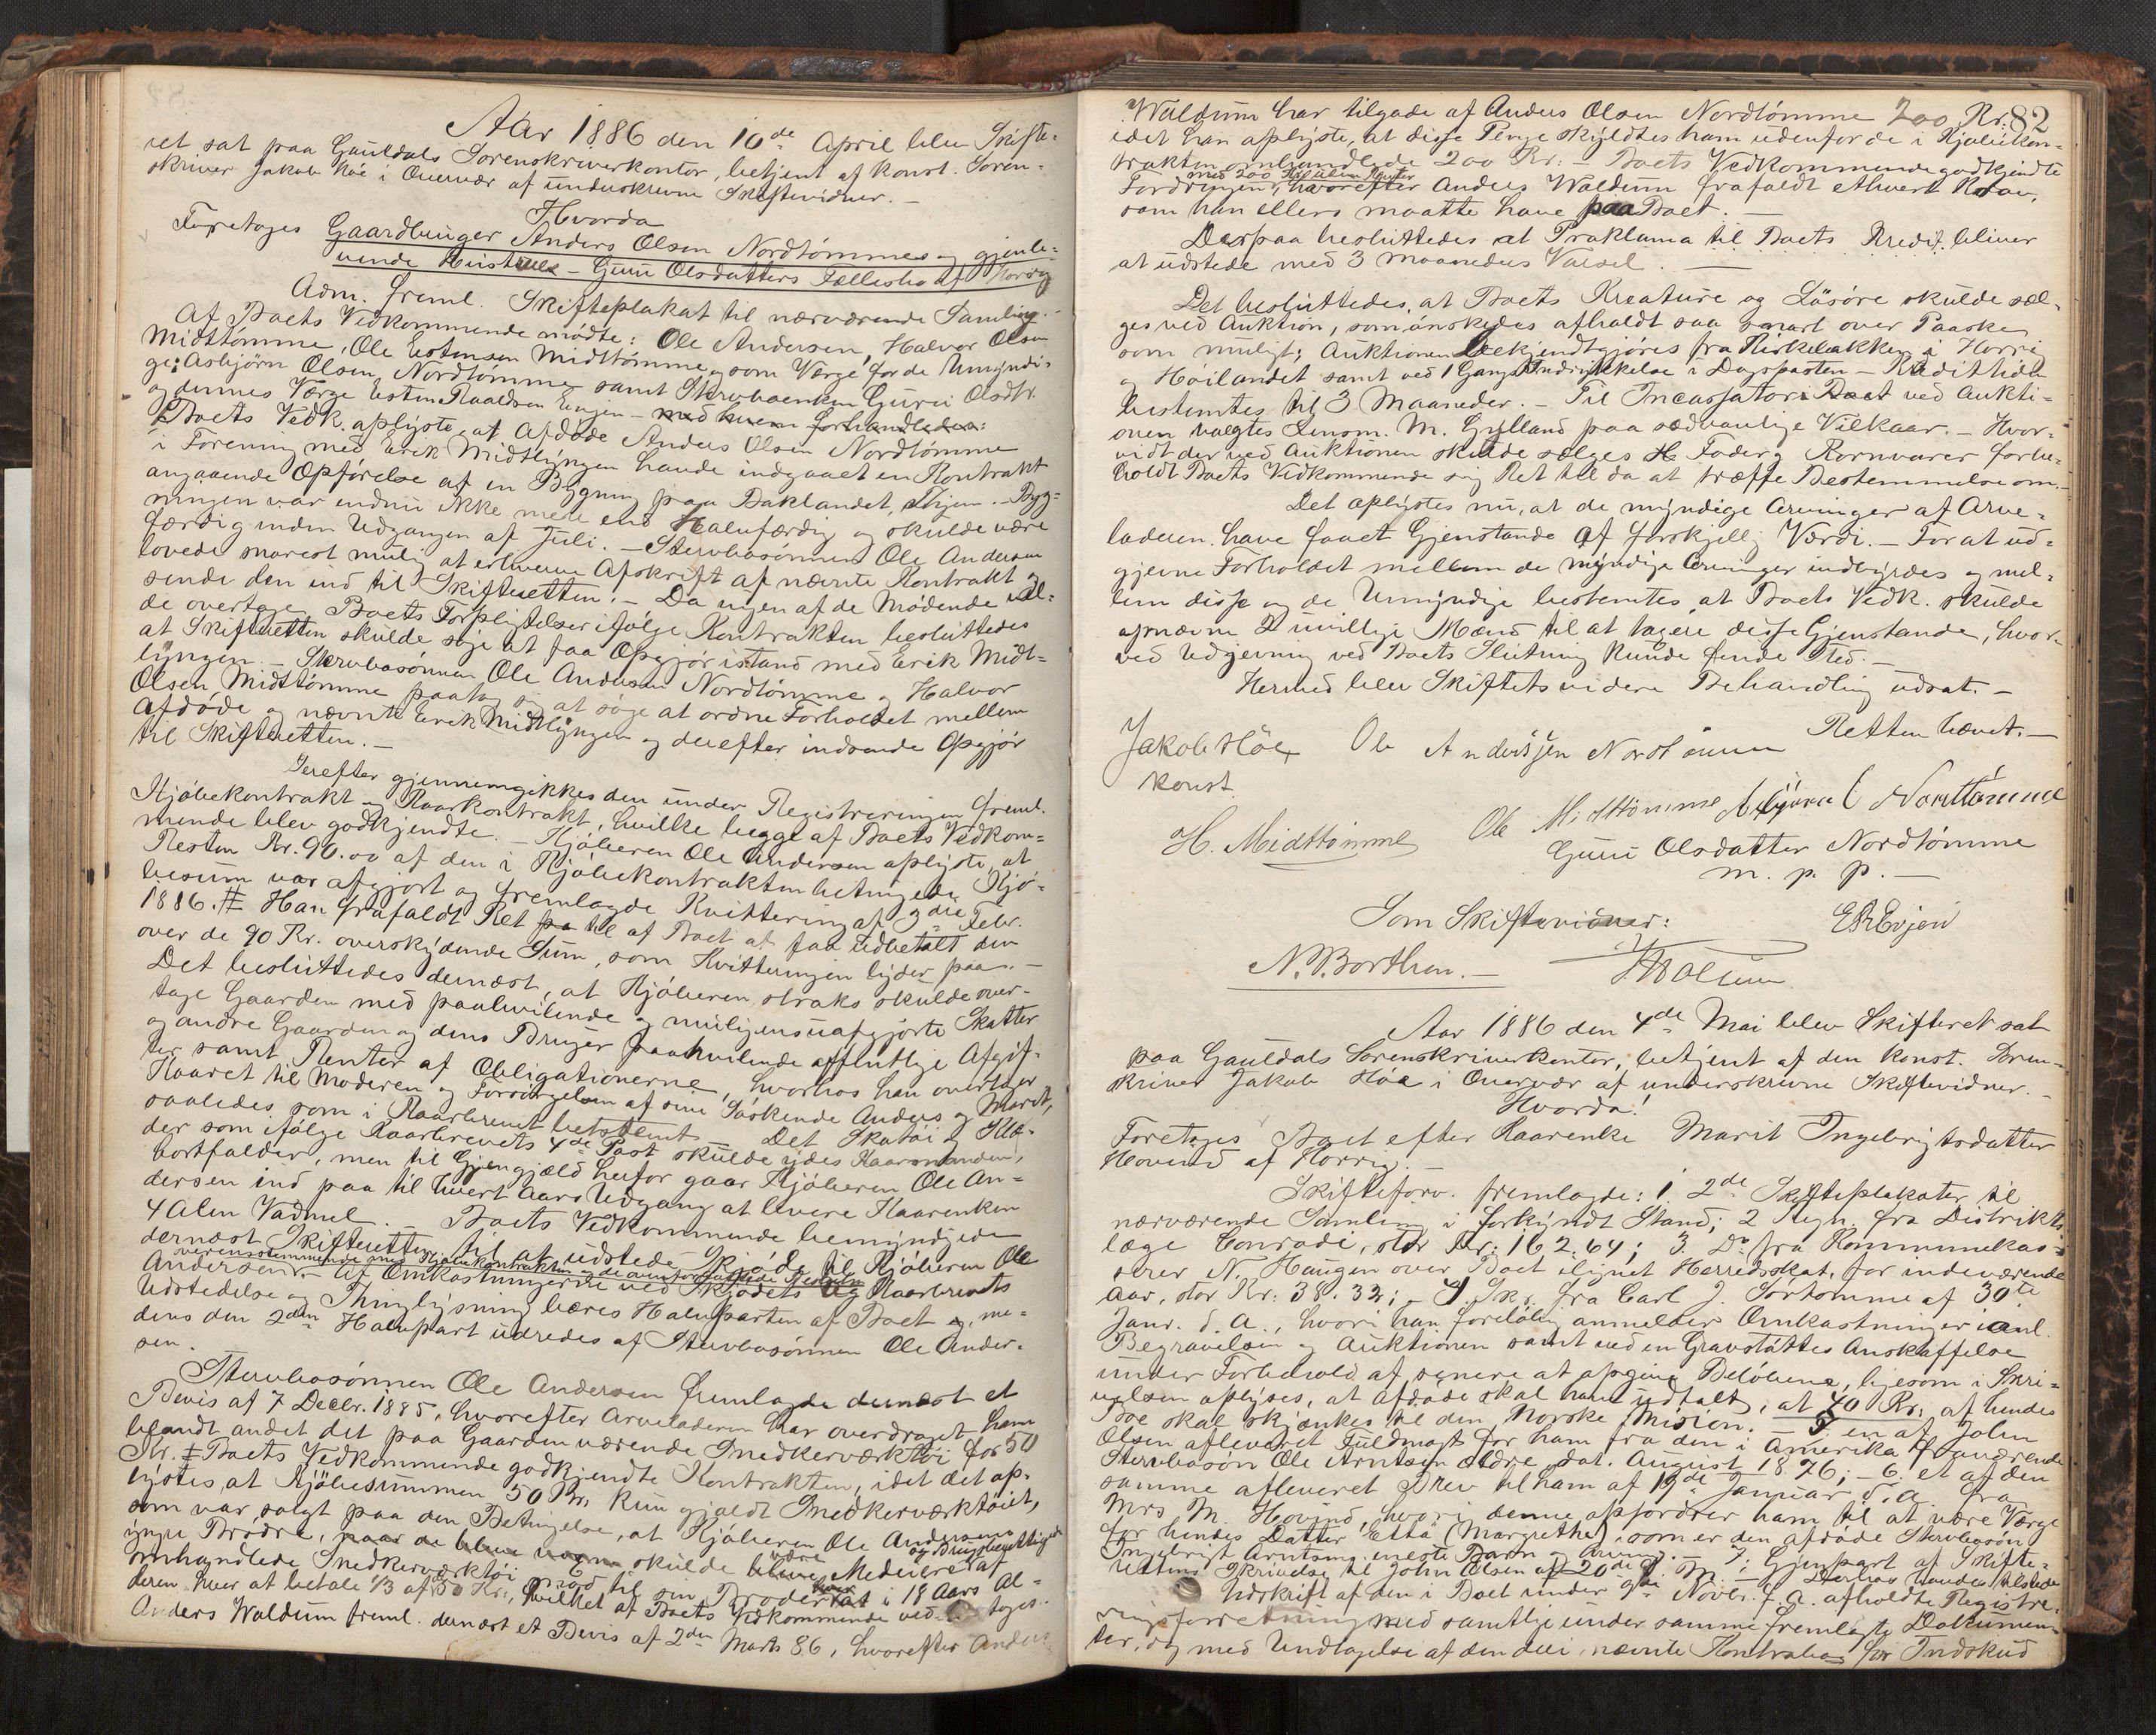 Aar 1886 den 10de April blev Skifte-
ret sat paa Gauldals Sorenskriverkontor, betjent af konst. Soren-
skriver Jakob Höe i Overvær af underskrevne Skiftevidner. —
Hvorda
Foretoges Gaardbruger Anders Olsen Nordtømmes og gjenle-
vende Hustrues — Guru Olsdatters Fællesbo af Horrig
Adm. freml. Skifteplakat til nærværende Samling. —
Af Boets Vedkommende mødte: Ole Andersen, Halvor Olsen
Midttømme, Ole Estensen Midttømme som Værge for de Umyndi-
ge: Asbjörn Olsen Nordtømme samt Stervboenken Guru Olsdtr.
og dennes Værge Esten Raaldsen Evjen — med hvem forhandledes:
Boets Vedk. oplyste, at Afdøde Anders Olsen Nordtømme
i Forening med Erik Midtlyngen havde indgaaet en Kontrakt
angaaende Opførelse af en Bygning paa Baklandet, Thjem. — Byg-
ningen var endnu ikke mere end Halvfærdig og skulde være
færdig inden Udgangen af Juli. — Stervbosønnen Ole Andersen
lovede snarest mulig at erhverve Afskrift af nævnte Kontrakt og
sende den ind til Skifteretten. — Da ingen af de Mødende vil-
de overtage Boets Forpligtelser ifølge Kontrakten besluttedes
at Skifteretten skulde søge at faa Opgjør istand med Erik Midt-
lyngen. — Stervbosønnen Ole Andersen Nordtømme og Halvor
Olsen Midttømme paatog sig at søge at ordne Forholdet mellem
Afdøde og nævnte Erik Midtlyngen og derefter indsende Opgjør
til Skifteretten. —
Derefter gjennemgikkes den under Registreringen freml.
Kjøbekontrakt og Kaarkontrakt, hvilke begge af Boets Vedkom-
mende blev godkjendte. — Kjøberen Ole Andersen oplyste, at
Resten Kr. 90.00 af den i Kjøbekontrakten betingede Kjø-
besum var afgjort og fremlagde Kvittering af 9de Febr.
1886. # Han frafaldt Ret til af Boet at faa udbetalt den
over de 90 Kr. overskydende Sum, som Kvitteringen lyder paa. —
Det besluttedes dernæst, at Kjøberen straks skulde over-
tage Gaarden med paahvilende og muligens uafgjorte Skatter
og andre Gaarden og dens Bruger paahvilende offentlige Afgif-
ter samt Renter af Obligationerne, hvorhos han overtager
Kaaret til Moderen og Forsørgelsen af sine Søskende Anders og Marit,
saaledes som i Kaarbrevet bestemt. — Det Skotøi og Klæ-
der som ifølge Kaarbrevets 4de Post skulde ydes Kaarmanden,
bortfalder, men til Gjengjæld herfor gaar Kjøberen Ole An-
dersen ind paa til hvert Aars Udgang at levere Kaarenken
4 Alen Vadmel. — Boets Vedkommende bemyndigede
dernæst Skifteretten til at udstede Skjøde til Kjøberen Ole
overensstemmende med Kjøbekontrakten
Andersen. — Af Omkostningerne ved Skjødets og Kaarbrevets
Udstedelse og Thinglysning bæres Halvparten af Boet, me-
dens den 2den Halvpart udredes af Stervbosønnen Ole Ander-
sen.
Stervbosønnen Ole Andersen fremlagde dernæst et
Bevis af 7 Decbr. 1885, hvorefter Arveladeren har overdraget ham
blandt andet det paa Gaarden værende Snedkerværktøi for 50
Kr. # Boets Vedkommende godkjendte Kontrakten, idet det op-
lystes, at Kjøbesummen 50 Kr. kun gjaldt Snedkerværktøiet,
som var solgt paa den Betingelse, at Kjøberen Ole Andersens
yngre Brødre, skulde være Medeiere af
og Brugsberettigede
omhandlede Snedkerværktøi mod til sin Broder hver i 18 Aars Al-
deren hver at betale 1/3 af 50 Kr., hvilket af Boets Vedkommende vedtoges.
Anders Waldum freml. dernæst et Bevis af 2den Marts 86, hvorefter Anders
82
Waldum har tilgode af Anders Olsen Nordtømme 200 Kr.
idet han oplyste, at disse Penge skyldtes ham udenfor de i Kjøbekon-
trakten omhandlede 200 Kr. — Boets Vedkommende godkjendte
med 200 Kr. uden Renter
Fordringen, hvorefter Anders Waldum frafaldt ethvert Krav,
som han ellers maatte have paa Boet. —
Derpaa besluttedes at Proklama til Boets Kredit. bliver
at udstede med 3 Maaneders Varsel. —
Det besluttedes, at Boets Kreature og Løsøre skulde sæl-
ges ved Auktion, som ønskedes afholdt saa snart over Paaske
som muligt; Auktionen bekjendtgjøres fra Kirkebakken i Horrig
og Høilandet samt ved 1 Gangs Indrykkelse i Dagsposten — Kredittiden
bestemtes til 3 Maaneder. — Til Incassator ved Aukti-
onen valgtes Lensm. M. Gylland paa sædvanlige Vilkaar. — Hvor-
vidt der ved Auktionen skulde sælges Foder og Kornvarer forbe-
holdt Boets Vedkommende sig Ret til da at træffe Bestemmelse om. —
Det oplystes nu, at de myndige Arvinger af Arve-
laderen have faaet Gjenstande af forskjellig Værdi. — For at ud-
gjevne Forholdet mellem de myndige Arvinger indbyrdes og mel-
lem disse og de Umyndige bestemtes, at Boets Vedk. skulde
opnævne 2 uvillige Mænd til at taxere disse Gjenstande, hvor-
ved Udjevning ved Boets Slutning kunde finde Sted. —
Hermed blev Skiftets videre Behandling udsat. —
Retten hævet. —
Jakob Höe
konst.
Ole Anderssen Nordtömme
H. Midttömme
Ole Midttömme
Asbjörn O Nordtömme
Guru Olsdatter Nordtömme
m. p. P. —
Som Skiftevidner:
E R Evjen
N. Borthen. —
Aar 1886 den 4de Mai blev Skifteret sat
paa Gauldals Sorenskriverkontor, betjent af den konst. Soren-
skriver Jakob Höe i Overvær af underskrevne Skiftevidner. —
Hvorda!
Foretoges Boet efter Kaarenke Marit Ingebrigtsdatter
Hovind af Horrig. —
Skifteforv. fremlagde: 1. 2de Skifteplakater til
nærværende Samling i forkyndt Stand; 2 Regn. fra Distrikts-
læge Conradi, stor Kr. 162.64; 3. Do fra Kommunekas-
serer N. Haugen over Boet ilignet Herredsskat, for indeværende
Aar, stor Kr. 38.32; — 4. Skr. fra Carl J. Sörtömme af 30te
Janr. d. A., hvori han foreløbig anmelder Omkostninger i anl.
Begravelsen og Auktionen samt ved en Gravstøttes Anskaffelse
under Forbehold af senere at opgive Beløbene, ligesom i Skri-
velsen oplyses, at Afdøde skal have udtalt, at 40 Kr. af hendes
Boe skal skjænkes til den Norske Mision. — 5. en af John
Olsen afleveret Fuldmagt for ham fra den i Amerika fraværende
Stervbosøn Ole Arntsen ældre, dat. August 1876; — 6. et af den
samme afleveret Brev til ham af 19de Januar d. A. fra
Mrs M. Hovind, hvori denne opfordrer ham til at være Værge
for hendes Datter Etta (Margrethe), som er den afdøde Stervbosøn
Ingebrigt Arntsens eneste Barn og Arving. — 7. Gjenpart af Skifte-
rettens Skrivelse til John Olsen af 20de f. M. — Derhos havdes tilstede
Udskrift af den i Boet under 9de Novbr. f. A. afholdte Registre-
ringsforretning med samtlige under samme fremlagte Dokumen-
ter, og med Undtagelse af den deri nævnte Kontrabog for Indskud